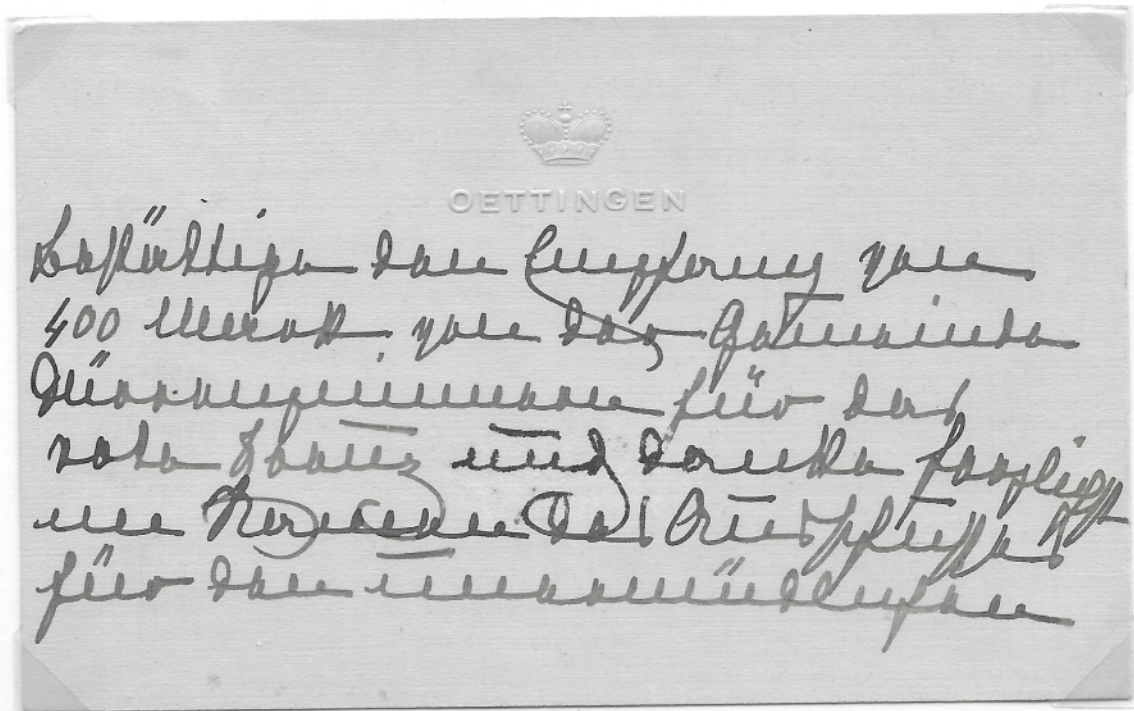 OETTINGEN
Bestättige den Empfang von
400 Mark von der Gemeinde
Dürrenzimmern für das
rote Kreuz und danke herzlichst
im Namen des Ausschusses
für den unermüdlichen